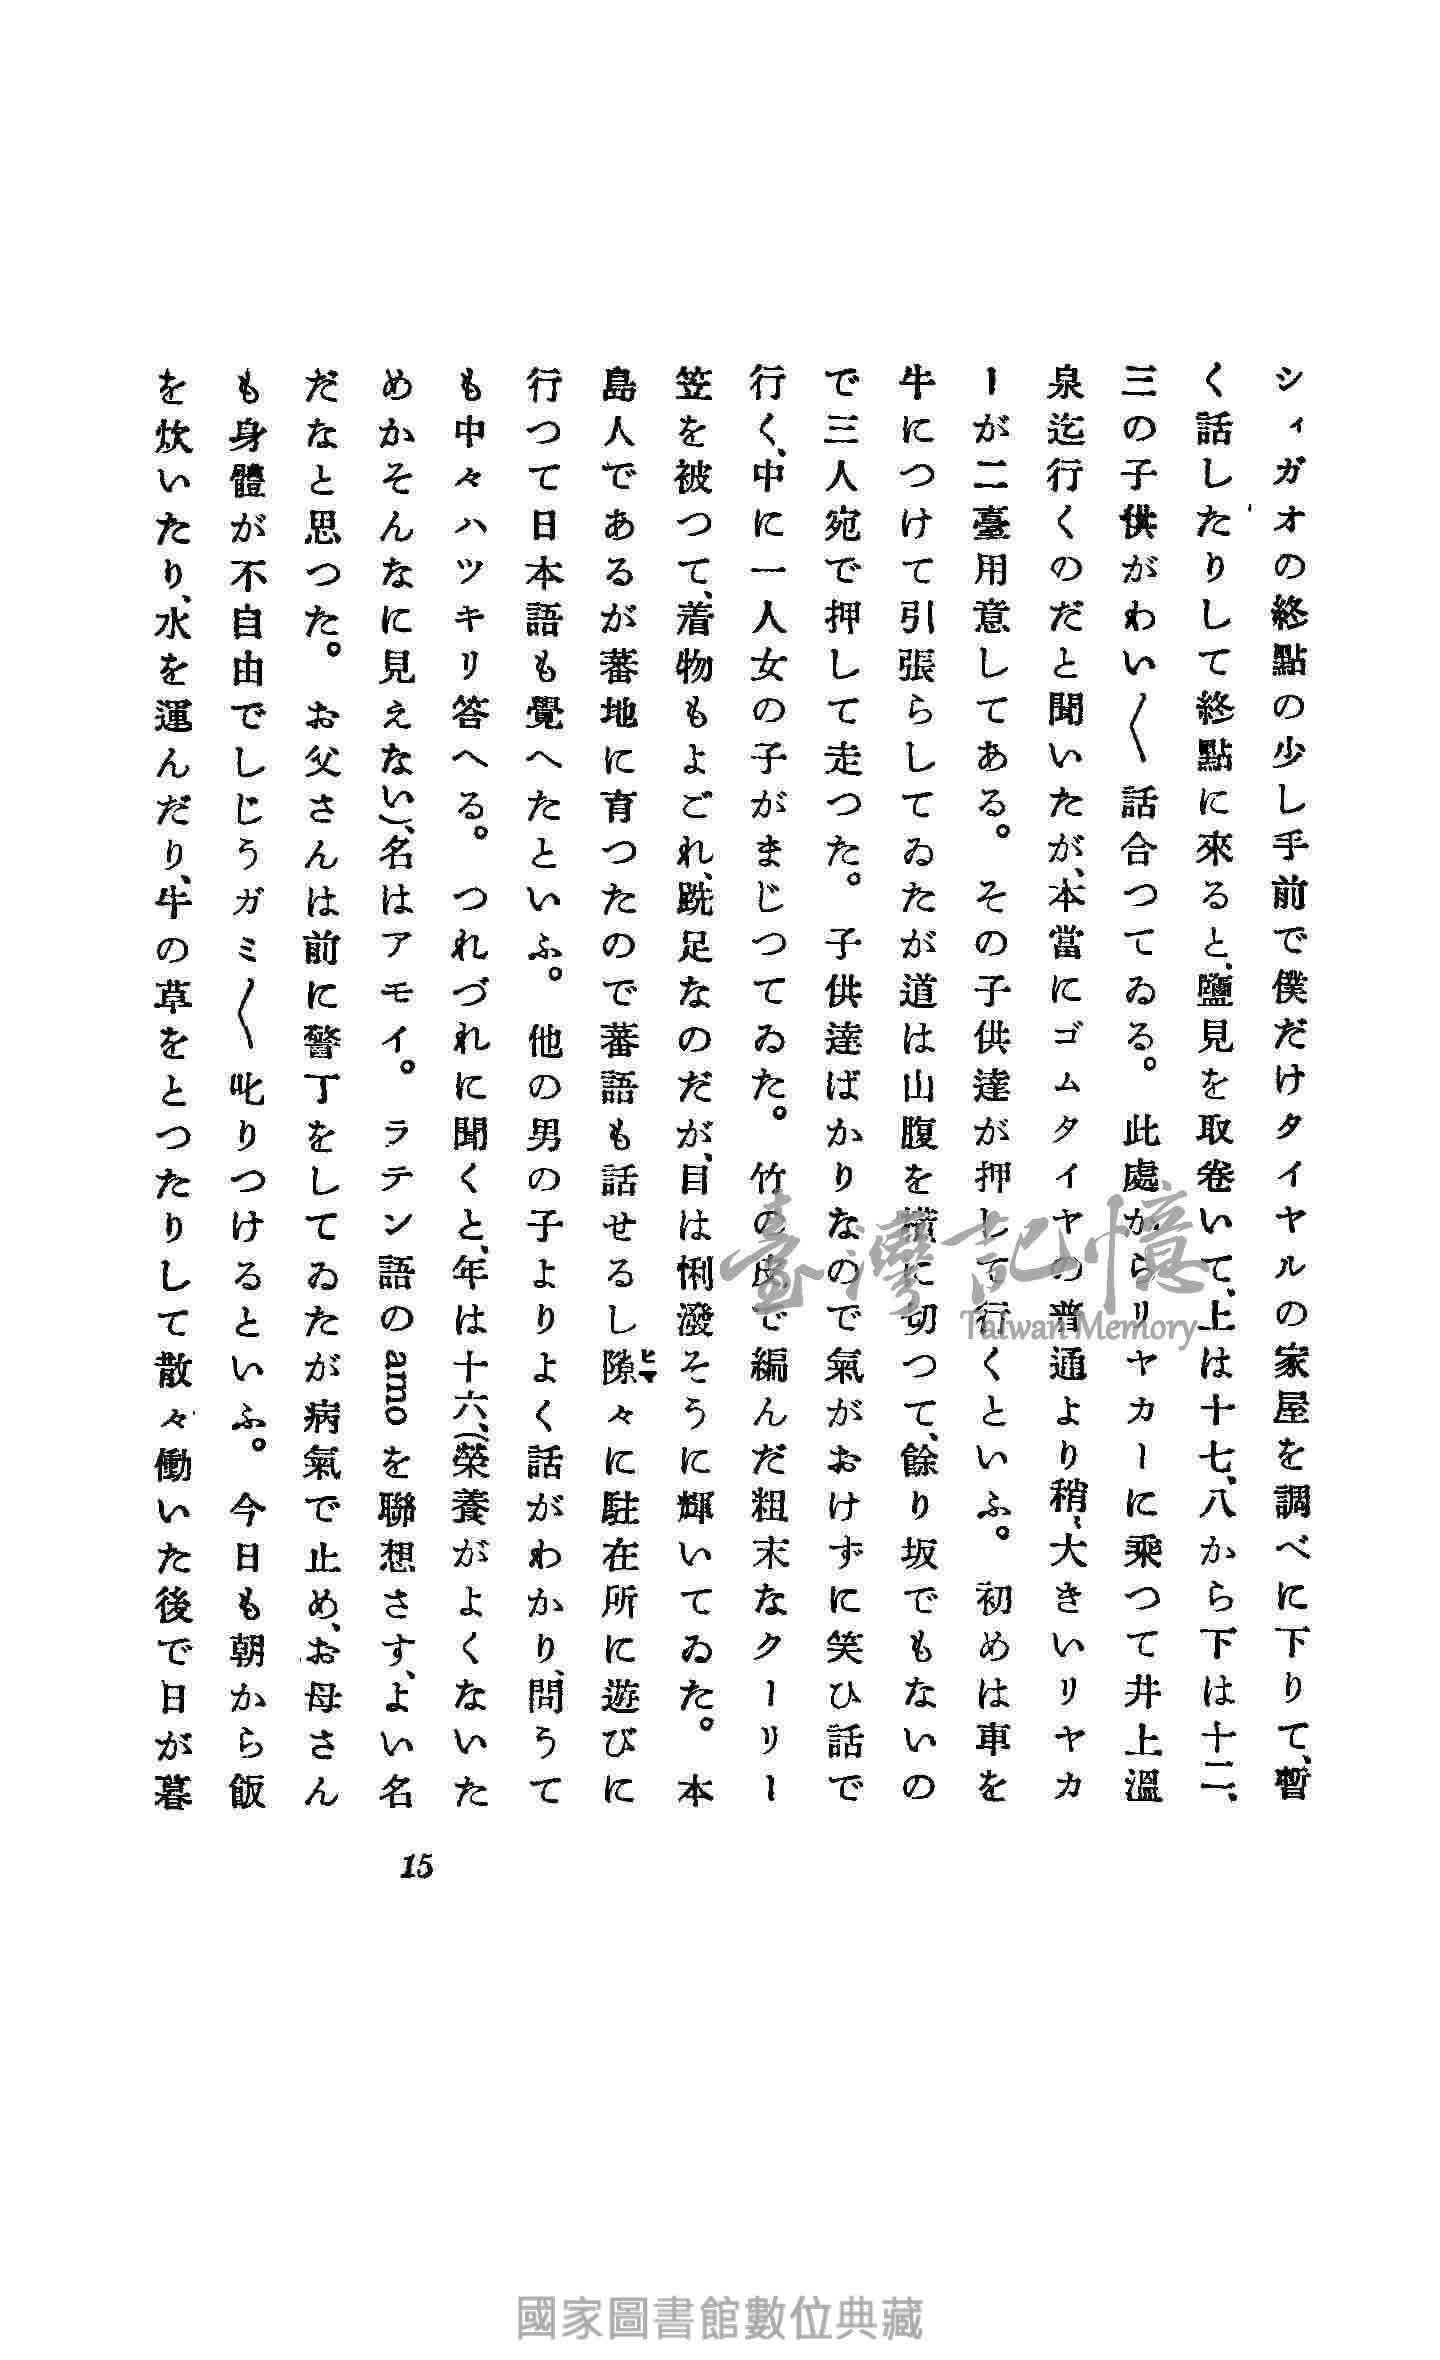 シィガオの終點の少し手前で僕だけタイヤルの家屋を調べに下りて、暫
く話したりして終點に來ると、鹽見を取卷いて、上は十七、八から下は十二、
三の子供がわい〱話合つてゐる。此處からリヤカーに乘つて井上溫
泉迄行くのだと聞いたが、本當にゴムタイヤの普通より稍〻大きいリヤカ
ーが二臺用意してある。その子供達が押して行くといふ。初めは車を
牛につけて引張らしてゐたが道は山腹を橫に切つて、餘り坂でもないの
で三人宛で押して走つた。子供達ばかりなので氣がおけずに笑ひ話で
行く、中に一人女の子がまじつてゐた。竹の皮で編んだ粗末なクーリー
笠を被つて、着物もよごれ、跣足なのだが、目は悧潑そうに輝いてゐた。本
島人であるが蕃地に育つたので蕃語も話せるし隙々に駐在所に遊びに
行つて日本語も覺へたといふ。他の男の子よりよく話がわかり、問うて
も中々ハツキリ答へる。つれづれに聞くと、年は十六、(榮養がよくないた
めかそんなに見えない)、名はアモイ。ラテン語のamoを聯想さす、よい名
だなと思つた。お父さんは前に警丁をしてゐたが病氣で止め、お母さん
も身體が不自由でしじうガミ〱叱りつけるといふ。今日も朝から飯
を炊いたり、水を運んだり、牛の草をとつたりして散々働いた後で日が暮
15
臺灣記憶
Taiwan Memory
國家圖書館數位典藏